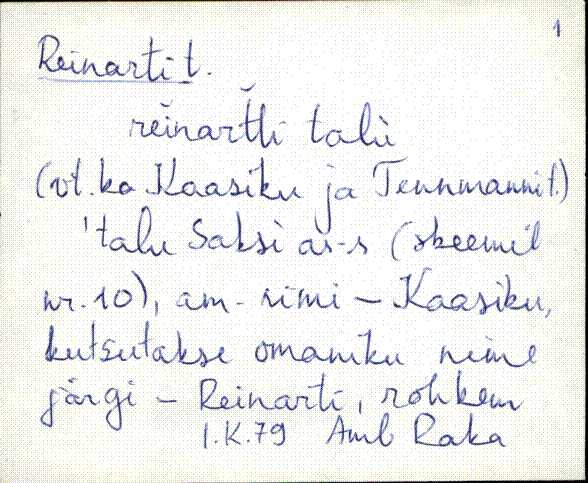 1
Reinarti t.
reinartti talù
(vt. ka Kaasiku ja Tennmanni t.)
'talu Saksi as-s (skeemil
nr. 10), am. nimi - Kaasiku,
kutsutakse omaniku nime
järgi - Reinarti, rohkem
I.K.79 Amb Raka